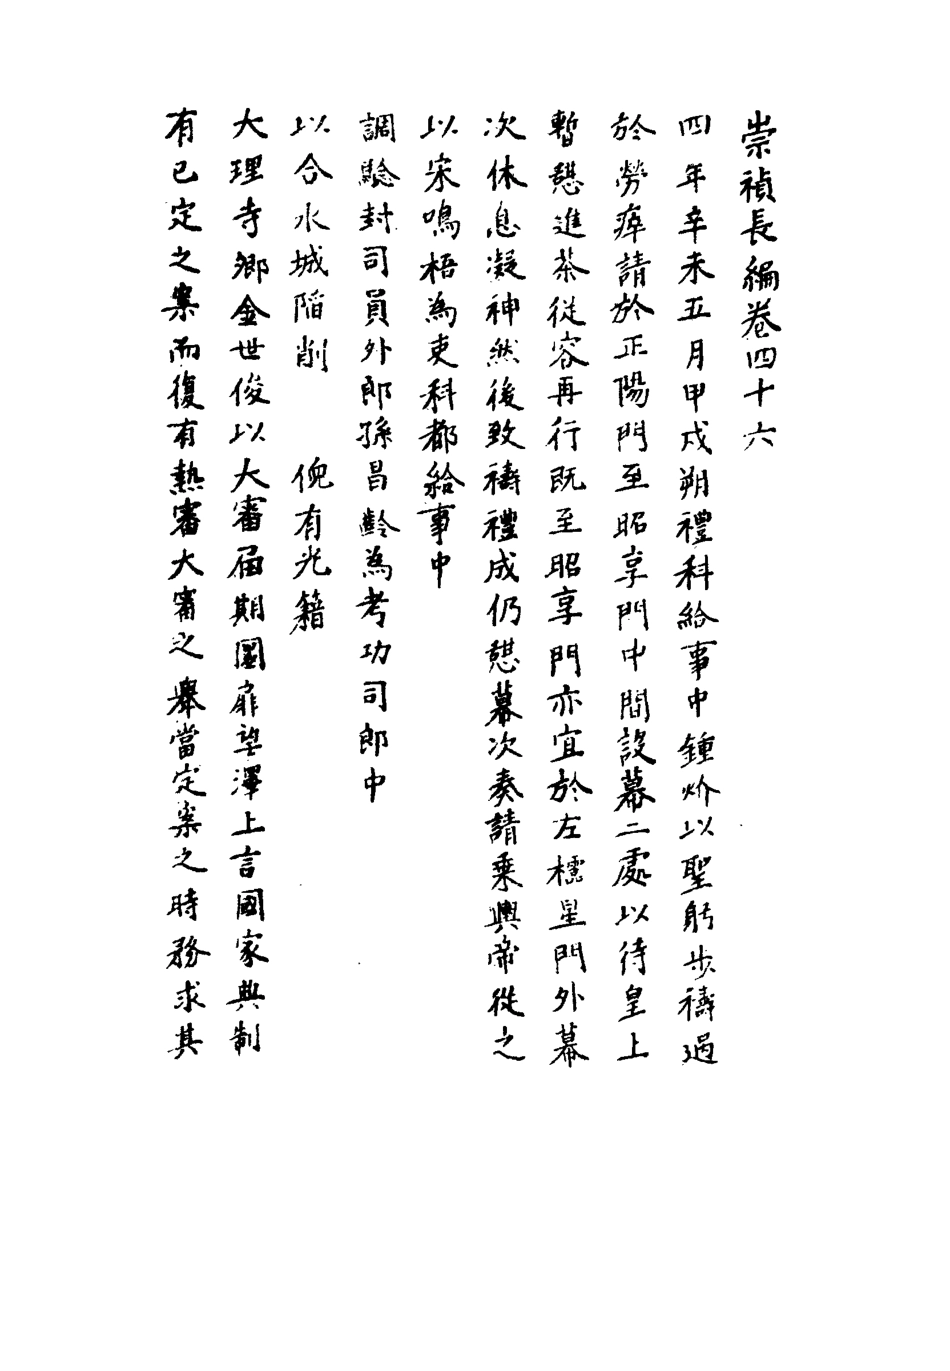 崇禎長編卷四十六
四年辛未五月甲戌朔禮科給事中鍾炌以聖躬步禱過
於勞瘁請於正陽門至昭享門中間設幕二處以待皇上
暫憩進茶從容再行既至昭享門亦宜於左櫺星門外幕
次休息凝神然後致禱禮成仍憩幕次奏請乗輿帝從之
以宋鳴梧為吏科都給事中
調驗封司員外郎孫昌齡為考功司郎中
以合水城陷削 倪有光籍
大理寺卿金世俊以大審屆期圜扉望澤上言國家典制
有已定之案而復有熱審大審之舉當定案之時務求其